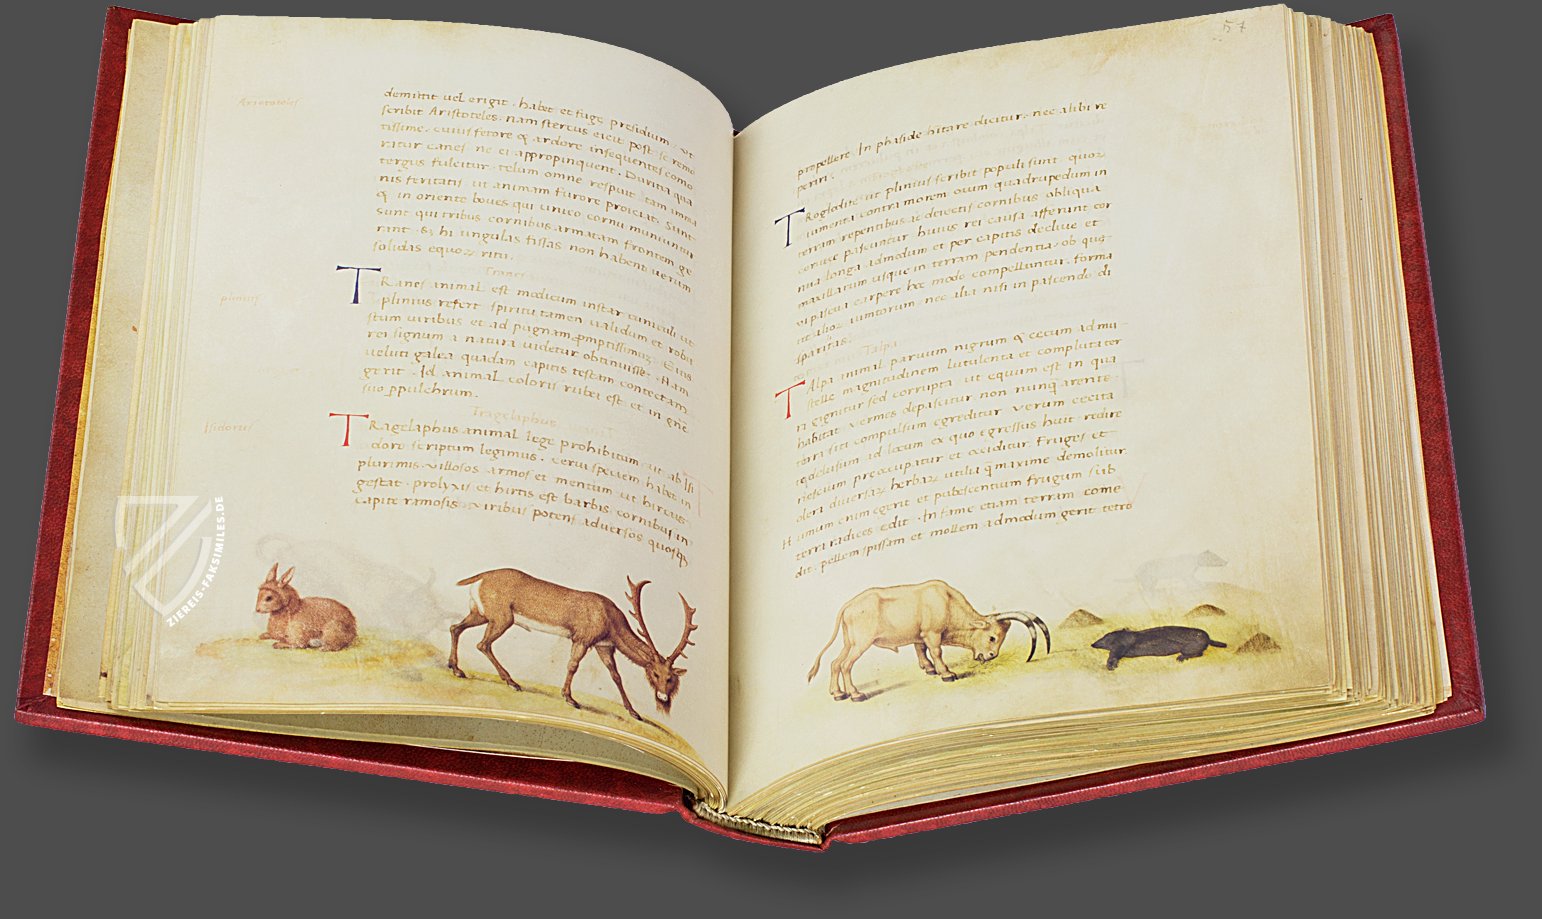 Aristoteles
demittit uel erigit. habet et fugę presidium. ut
scribit Aristoteles. nam stercus eicit post se remo
tissime. cuius fetore & ardore insequentes como
ratur canes ne ei appropinquent. Duritia qua
tergus fulcitur. telum omne respuit. tam imma
nis feritatis ut animam furore proiciat. Sunt
& in oriente boues qui unico cornu muniuntur
sunt qui tribus cornibus armatam frontem ge
rant. & hi ungulas fissas non habent uerum
solidas equoꝝ ritu.
Tranes
plinius
TRanes animal est modicum instar cuniculi ut
plinius refert spiritu tamen ualidum et robu
stum uiribus et ad pugnam promptissimum. Eius
rei signum a natura uidetur obtinuisse. Nam
ueluti galea quadam capitis testam contectam
gerit. Id animal coloris rubei est et in gñe
suo ꝑpulchrum.
Tragelaphus
Isidorus
TRagelaphus animal lege prohibitum ut ab Isi
doro scriptum legimus. cerui speciem habet in
plurimis. Villosos armos et mentum ut hircus
gestat. prolyxis et hirtis est barbis. cornibus in
capite ramosis. uiribus potens aduersos quosq
57
propellere. In phaside hitare dicitur. nec alibi re
periri.
TRoglodite ut plinius scribit populi sunt. quoꝝ
iumenta contra morem ouum quadrupedum in
terram repentibus ac deiectis cornibus obliqua
ceruice pascuntur huius rei causa afferunt cor
nua longa admodum et per capitis decliue et
maxillarum usque in terram pendentia. ob quę
ut pascua carpere hoc modo compelluntur. forma
sit alioꝝ iumtorum. nec alia nisi in pascendo di
sparitas.
Talpa
TAlpa animal paruum nigrum & cecum ad mu
stelle magnitudinem lutulenta et complutater
ra gignitur sed corrupta. ut equum est in qua
habitat. uermes depascitur non nunq̃ arente.
terra siti compulsum egreditur uerum cecita
te delusum ad locum ex quo egressus fuit redire
nescium preoccupatur et occiditur. Fruges et
olera diuersaꝝ herbaꝝ utilia q̃maxime demolitur.
Humum enim egerit et pubescentium frugum sub
terra radices edit. In fame etiam terram come
dit. pellem spissam et mollem admodum gerit tetro
ZIEREIS-FAKSIMILES.DE